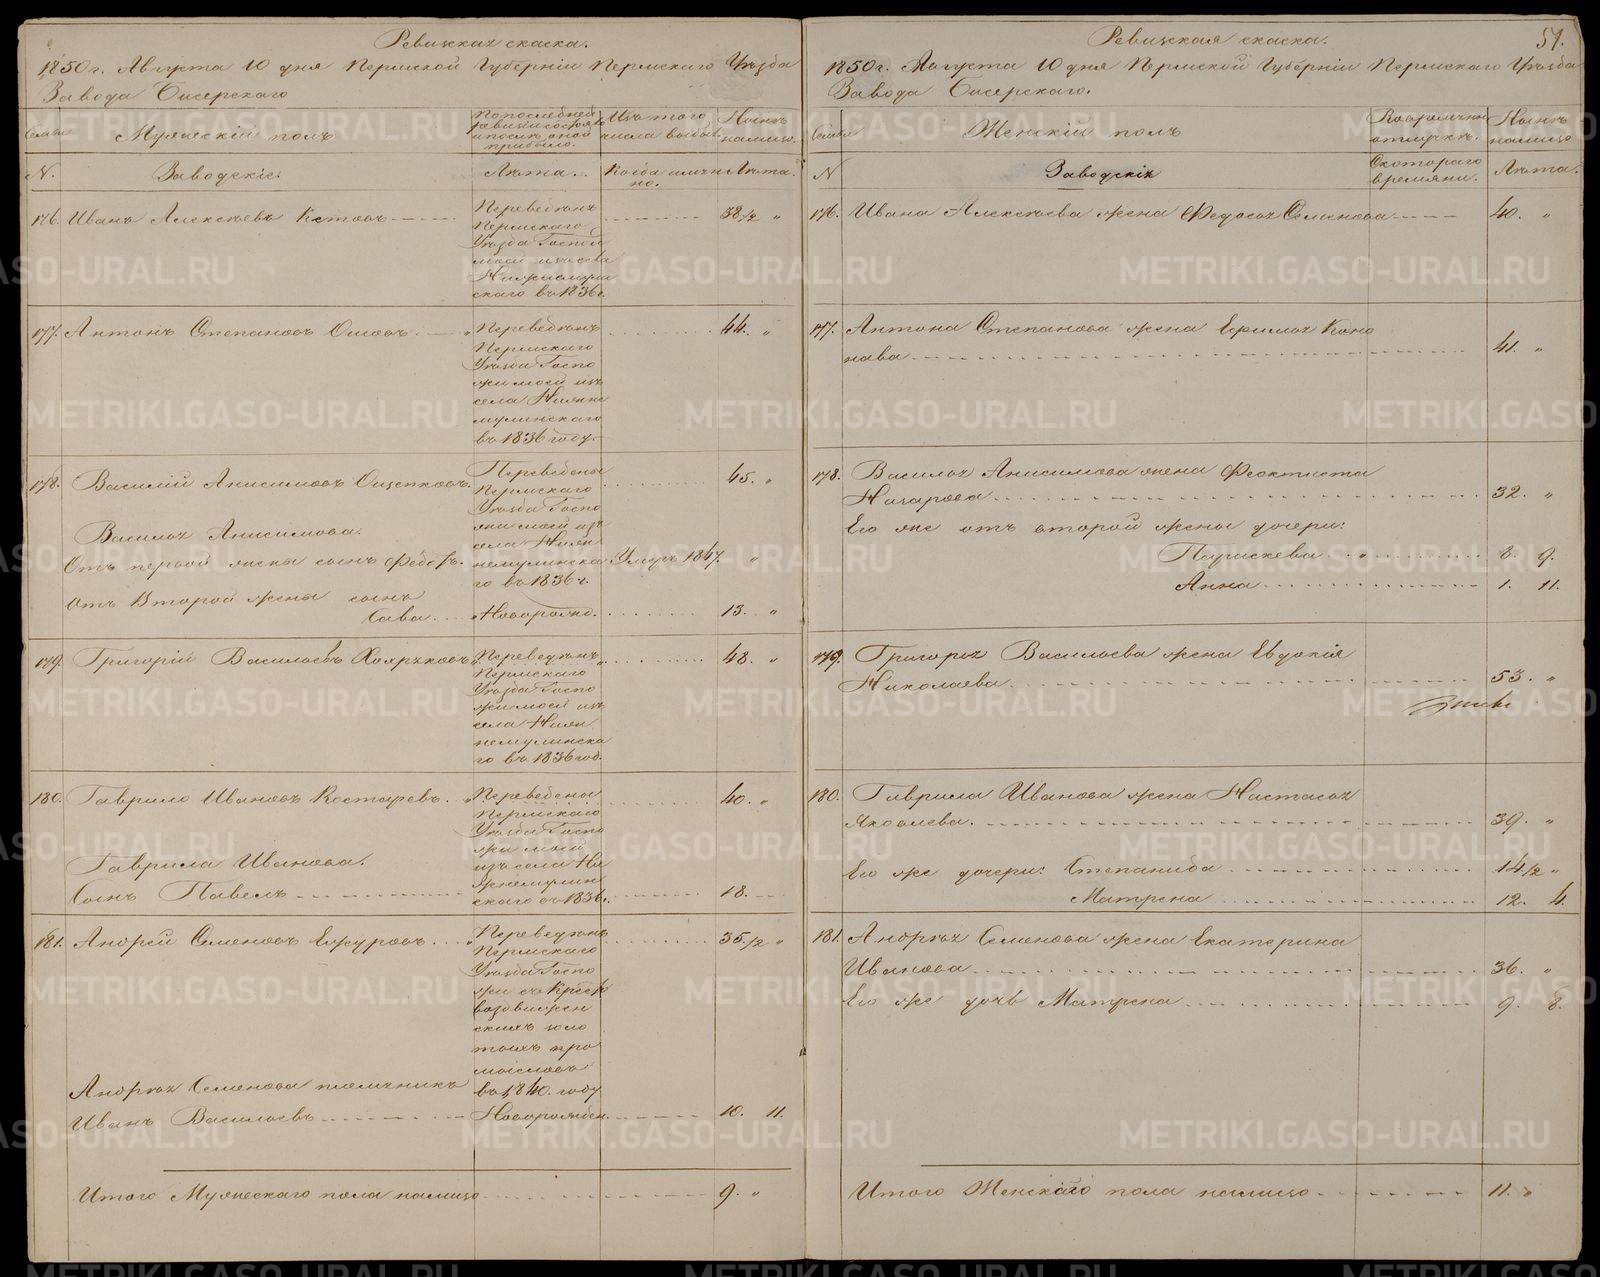 Ревизкая скаска.
1850 г. Августа 10 дня Пермской Губерніи Пермскаго Уѣзда
Завода Бисерскаго
Мужескій полъ
По последней ревизіи состояло и после оной прибыло.
Изъ того числа выбыло
Нынѣ налицо.
N.
Заводскіе.
Лѣта.
Когда имянно.
Лѣта.
176. Иванъ Алексѣевъ Кетовъ
Переведѣнъ
Пермскаго
Уѣзда
скаго въ 1836 г.
38 1/2 "
177. Антонъ Степановъ
Переведѣнъ
Пермскаго
Уѣзда Госпо
жи моей изъ
села Нижне
мулинскаго
въ 1836 году.
44. "
178. Василій Анисимовъ Ощепковъ.
Переведены
Пермскаго
Уѣзда Госпо
жи моей изъ
села Нижн
немулинска
го въ 1836 г.
45. "
Василья Анисимова.
Отъ первой жены сынъ Федоръ.
Умеръ 1847. "
Отъ Второй жены сынъ
Сава. " Новорожд.
13. "
179. Григорій Васильевъ
Переведѣнъ
Пермскаго
Уѣзда Госпо
жи моей изъ
села Нижн
немулинска
го въ 1836 год.
48. "
180. Гаврило Ивановъ Костаревъ.
Переведены
Пермскаго
Уѣзда Госпо
жи моей
изъ села Ни
жнемулин
скаго въ 1836 г.
40. "
Гаврила Иванова.
Сынъ Павелъ
18.
181. Андрей Семеновъ
Переведѣнъ
Пермскаго
Уѣзда Госпо
жи съ Кресто
воздвижен
скихъ золо
тыхъ про
мысловъ
въ 1840. году
35. 1/2 "
Андрѣя Семенова племянникъ
Иванъ Васильевъ
Новорожден.
10. 11.
Итого Мужескаго пола налицо 9. "
Ревизская скаска.
51.
1850 г. Августа 10 дня Пермской Губерніи Пермскаго Уѣзда
Завода Бисерскаго.
Женскій полъ
отлучкѣ.
Нынѣ налицо
N
Заводскія
С котораго времяни.
Лѣта.
176. Ивана Алексѣева жена Федосья Семенова 40. "
177. Антона Степанова жена Ефимья Коно
нава 41. "
178. Василья Анисимова жена Феоктиста
Назарова 32. "
Его же отъ второй жены дочери:
Парискева 8. 9.
Анна 1. 11.
179. Григорья Васильева жена Евдокія
Николаева 53. "
180. Гаврила Иванова жена Настасья
Яковлева. 39. "
Его же дочери: Степанида 14 1/2 "
Матрена 12. 4.
181. Андрѣя Семенова жена Екатерина
Иванова 36. "
Его же дочь Матрена 9. 8.
Итого Женскаго пола налицо 11. "
METRIKI.GASO-URAL.RU